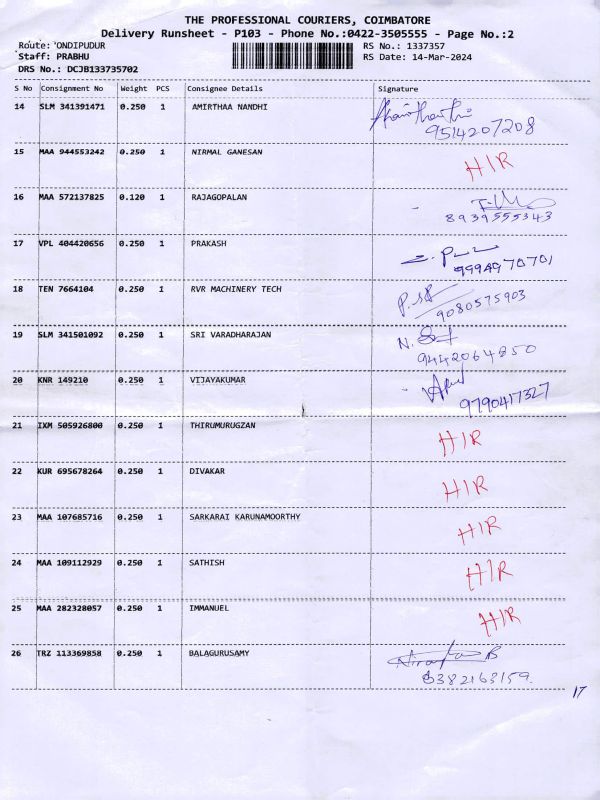 THE PROFESSIONAL COURIERS, COIMBATORE
Delivery Runsheet - P103 - Phone No.:0422-3505555 - Page No.:2
Route: ONDIPUDUR RS No.: 1337357
Staff: PRABHU RS Date: 14-Mar-2024
DRS No.: DCJB133735702
S No Consignment No Weight PCS Consignee Details Signature
14 SLM 341391471 0.250 1 AMIRTHAA NANDHI
9514207208
15 MAA 944553242 0.250 1 NIRMAL GANESAN HIR
16 MAA 572137825 0.120 1 RAJAGOPALAN
8939555343
17 VPL 404420656 0.250 1 PRAKASH
9994970701
18 TEN 7664104 0.250 1 RVR MACHINERY TECH
9080575903
19 SLM 341501092 0.250 1 SRI VARADHARAJAN
9442064350
20 KNR 149210 0.250 1 VIJAYAKUMAR
9790417327
21 IXM 505926800 0.250 1 THIRUMURUGZAN HIR
22 KUR 695678264 0.250 1 DIVAKAR HIR
23 MAA 107685716 0.250 1 SARKARAI KARUNAMOORTHY HIR
24 MAA 109112929 0.250 1 SATHISH HIR
25 MAA 282328057 0.250 1 IMMANUEL HIR
26 TRZ 113369858 0.250 1 BALAGURUSAMY
6382163159
17